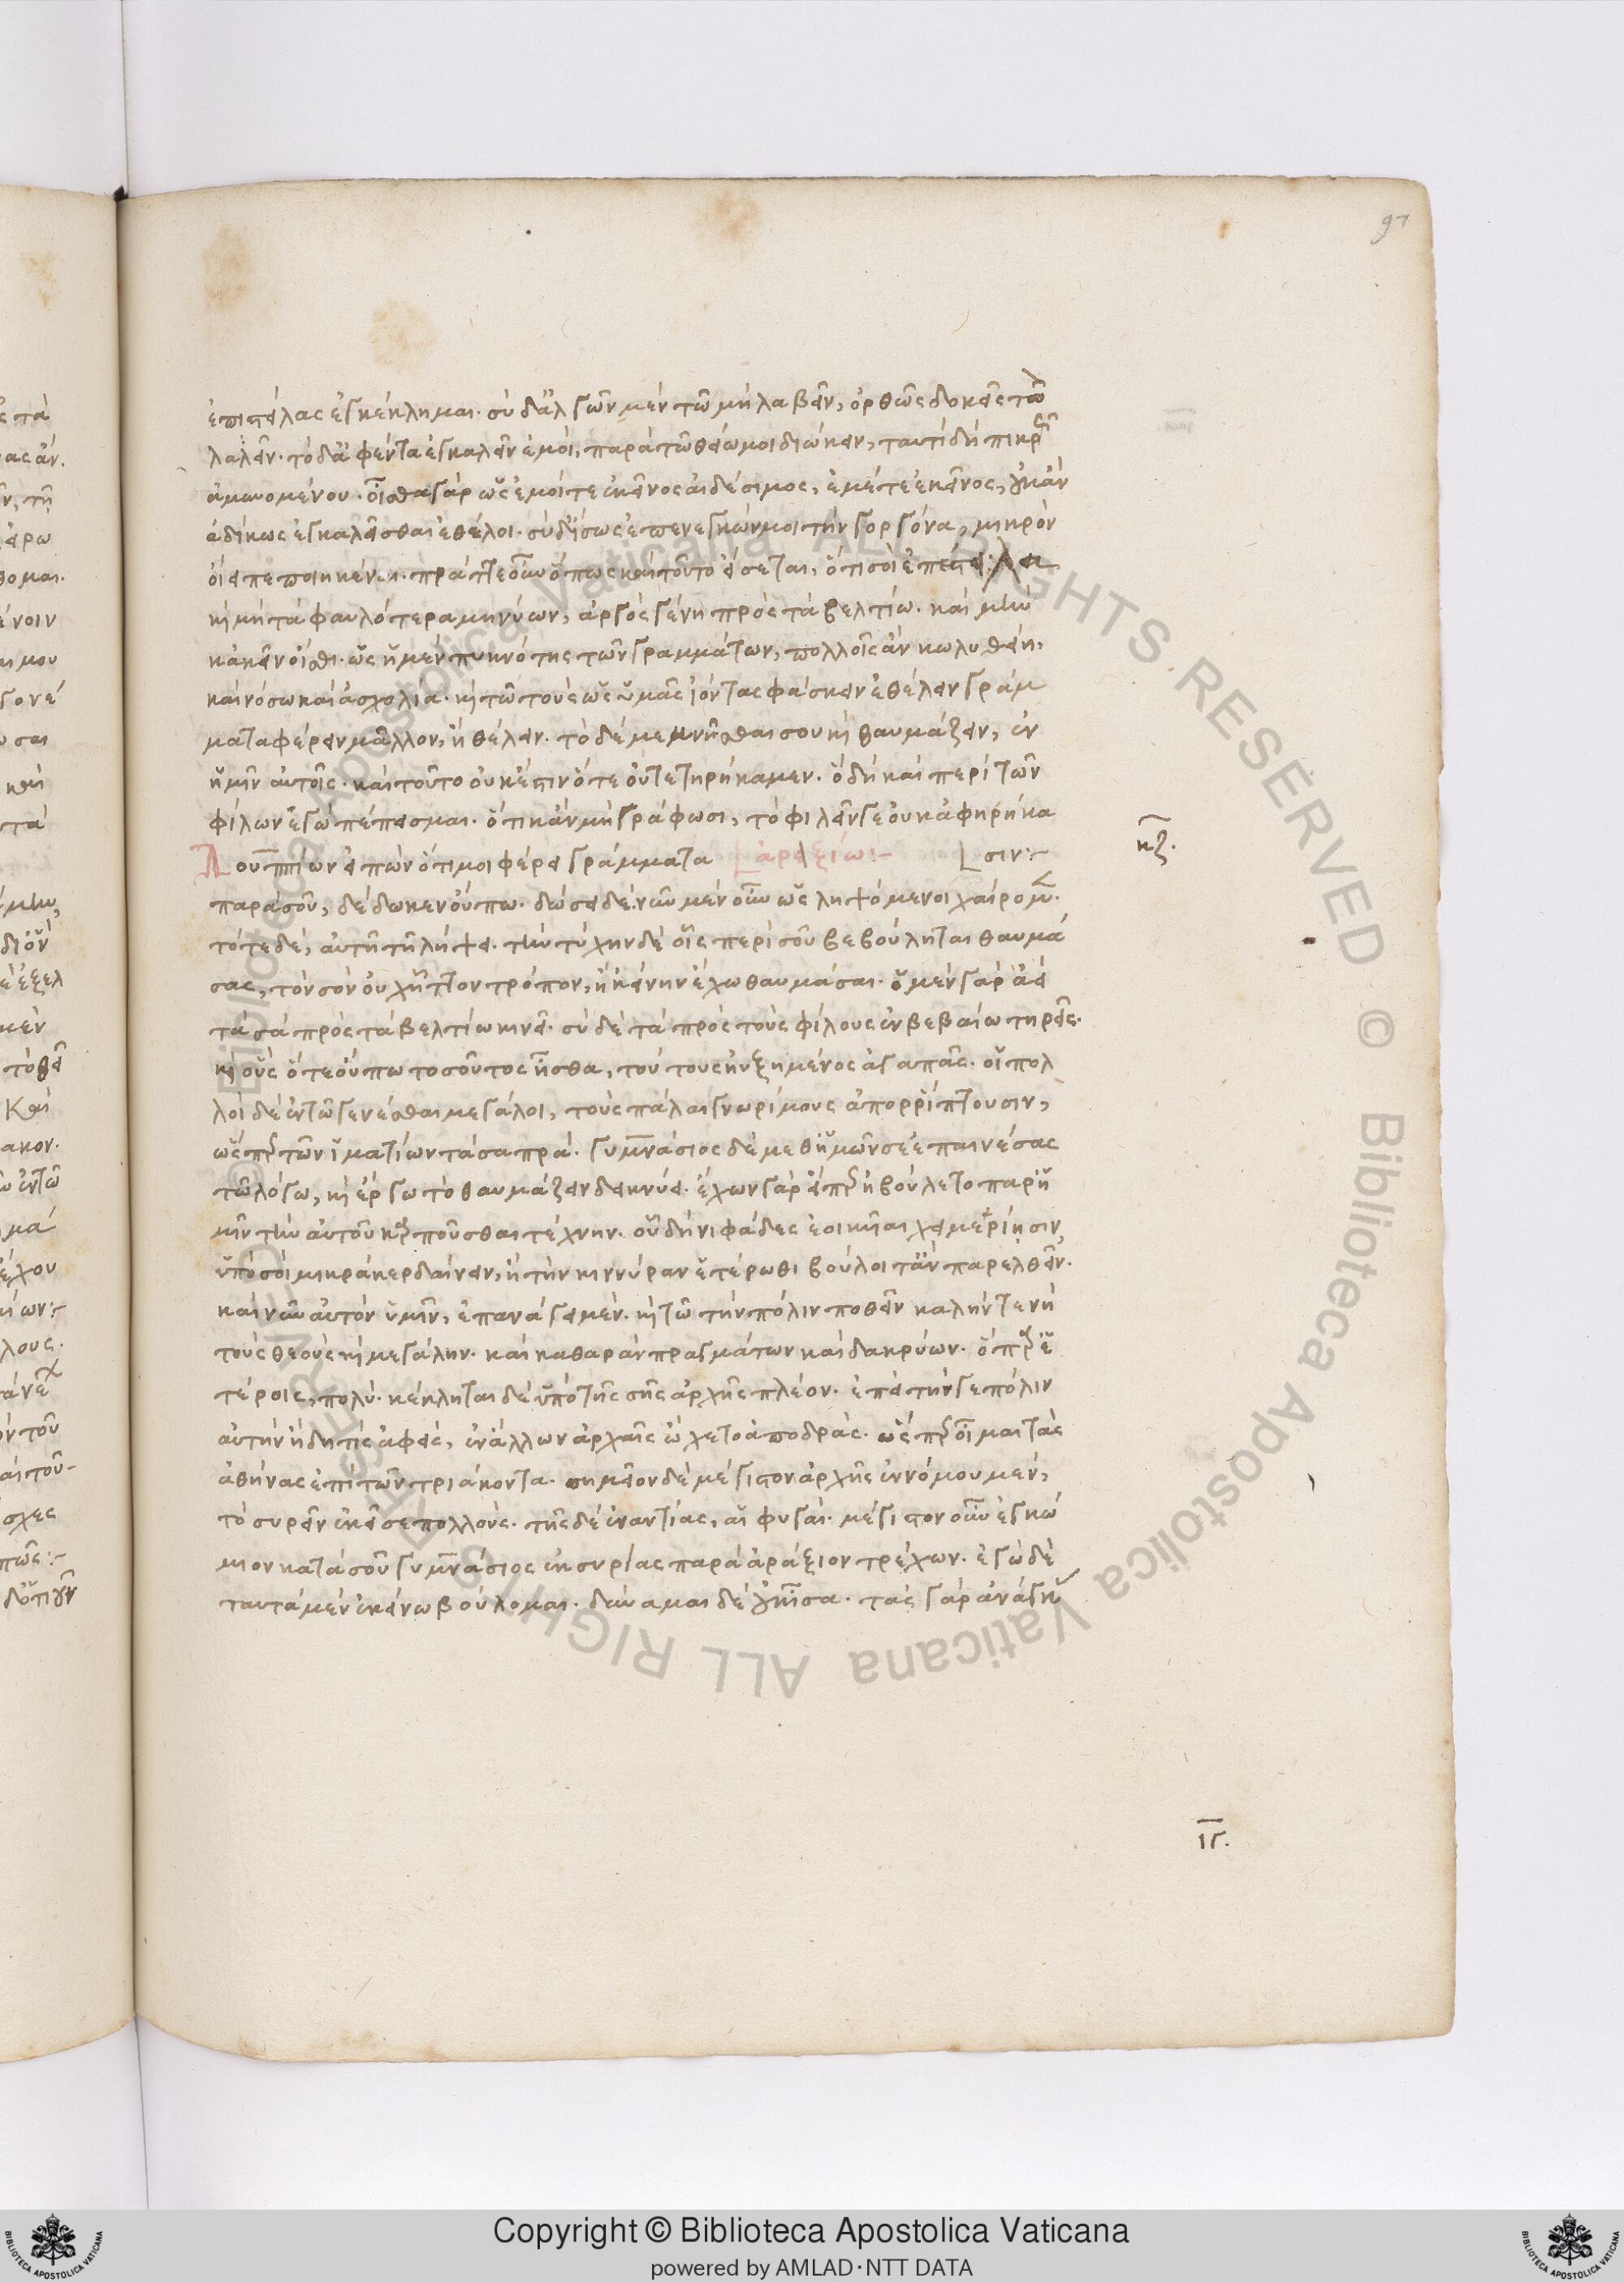 97
ἐπιστείλας ἐγκέκλημαι. σὺ δ' ἀλγῶν μὲν τῶ μὴ λαβεῖν, ὀρθῶς δοκεῖς τῶ
λαλεῖν. τὸ δ' ἀφέντα ἐγκαλεῖν ἐμοὶ, παρὰ τῶ θείω μοι διώκειν, ταυτὶ δὴ πικρῶς
ἀμυνομένου. οἶσθα γὰρ ὡς ἐμοί τε ἐκεῖνος αἰδέσιμος, ἐμέ τε ἐκεῖνος, κἂν
ἀδίκως ἐγκαλεῖσθαι ἐθέλοι. σὺ δ' ἴσως ἐπενεγκών μοι τὴν γοργόνα, μικρὸν
οἴει πεποιηκέναι. πρᾶττε οὖν ὅπως καὶ τοῦτο εἴσεται, ὅτι σοὶ ἐπέστειλα
καὶ μὴ τὰ φαυλότερα μηνύων, ἀργὸς γένη πρὸς τὰ βελτίω. καὶ μὴν
κἀκεῖν' οἶσθι. ὡς ἡ μὲν πυκνότης τῶν γραμμάτων, πολλοῖς ἂν κωλυθείη,
καὶ νόσω καὶ ἀσχολία. καὶ τῶ τοὺς ὡς ὑμᾶς ἰόντας φάσκειν ἐθέλειν γράμ
ματα φέρειν μᾶλλον, ἢ θέλειν. τὸ δὲ μεμνῆσθαι σου καὶ θαυμάζειν, ἐν
ἡμῖν αὐτοῖς. καὶ τοῦτο οὐκ ἔστιν ὅτε οὐ τετηρήκαμεν. ὃ δὴ καὶ περὶ τῶν
φίλων ἐγὼ πέπεισμαι. ὅτι κἂν μὴ γράφωσι, τὸ φιλεῖν γε οὐκ ἀφηρήκα
Λουππίων εἰπὼν ὅτι μοι φέρει γράμματα [ἀραξίω:- [σιν:-
κζ.
παρὰ σοῦ, δέδωκεν οὔπω. δώσει δέ. νῦν μὲν οὖν ὡς ληψόμενοι χαίρομεν.
τότε δὲ, αὐτῆ τῆ λήψει. τὴν τύχην δὲ οἷς περὶ σοῦ βεβούληται θαυμά
σας, τὸν σὸν οὐχ ἧττον τρόπον, ἢ κείνην ἔχω θαυμάσαι. ἡ μὲν γὰρ ἀεὶ
τὰ σὰ πρὸς τὰ βελτίω κινεῖ. σὺ δὲ τὰ πρὸς τοὺς φίλους ἐν βεβαίω τηρεῖς.
καὶ οὓς ὅτε οὔπω τοσοῦτος ἦσθα, τούτους ηὐξημένος ἀγαπᾶς. οἱ πολ
λοὶ δὲ ἐν τῶ γενέσθαι μεγάλοι, τοὺς πάλαι γνωρίμους ἀπορρίπτουσιν,
ὥσπερ τῶν ἱματίων τὰ σαπρά. γυμνάσιος δὲ μεθ' ἡμῶν σε ἐπαινέσας
τῶ λόγω, καὶ ἔργω τὸ θαυμάζειν δεικνύει. ἔχων γὰρ εἴπερ ἠβούλετο παρ' ἡ
μῖν τὴν αὑτοῦ καρποῦσθαι τέχνην. οὗ δὴ νιφάδες ἐοικῆαι χειμερίησιν,
ὑπὸ σοὶ μικρὰ κερδαίνειν, ἢ τὴν κιννύραν ἑτέρωθι βούλοιτ' ἂν παρελθεῖν.
καὶ νῦν αὐτὸν ὑμῖν, ἐπανάγει μὲν. καὶ τῶ τὴν πόλιν ποθεῖν καλήν τε νὴ
τοὺς θεοὺς καὶ μεγάλην. καὶ καθαρὰν πραγμάτων καὶ δακρύων. ὅπερ ἑ
τέροις, πολύ. κέκληται δὲ ὑπὸ τῆς σῆς ἀρχῆς πλέον. ἐπεὶ τήν γε πόλιν
αὐτὴν ἤδη τις ἀφεὶς, ἐν ἄλλων ἀρχαῖς ὤχετο ἀποδράς. ὥσπερ οἶμαι τὰς
ἀθήνας ἐπὶ τῶν τριάκοντα. σημεῖον δὲ μέγιστον ἀρχῆς ἐννόμου μὲν,
τὸ συρεῖν ἐκεῖσε πολλούς. τῆς δὲ ἐναντίας, αἱ φυγαί. μέγιστον οὖν ἐγκώ
μιον κατὰ σοῦ γυμνάσιος ἐκ συρίας παρὰ ἀράξιον τρέχων. ἐγὼ δὲ
ταυτὰ μὲν ἐκείνω βούλομαι. δύναμαι δὲ ἥκιστα. τὰς γὰρ ἀνάγκ
ιγ.